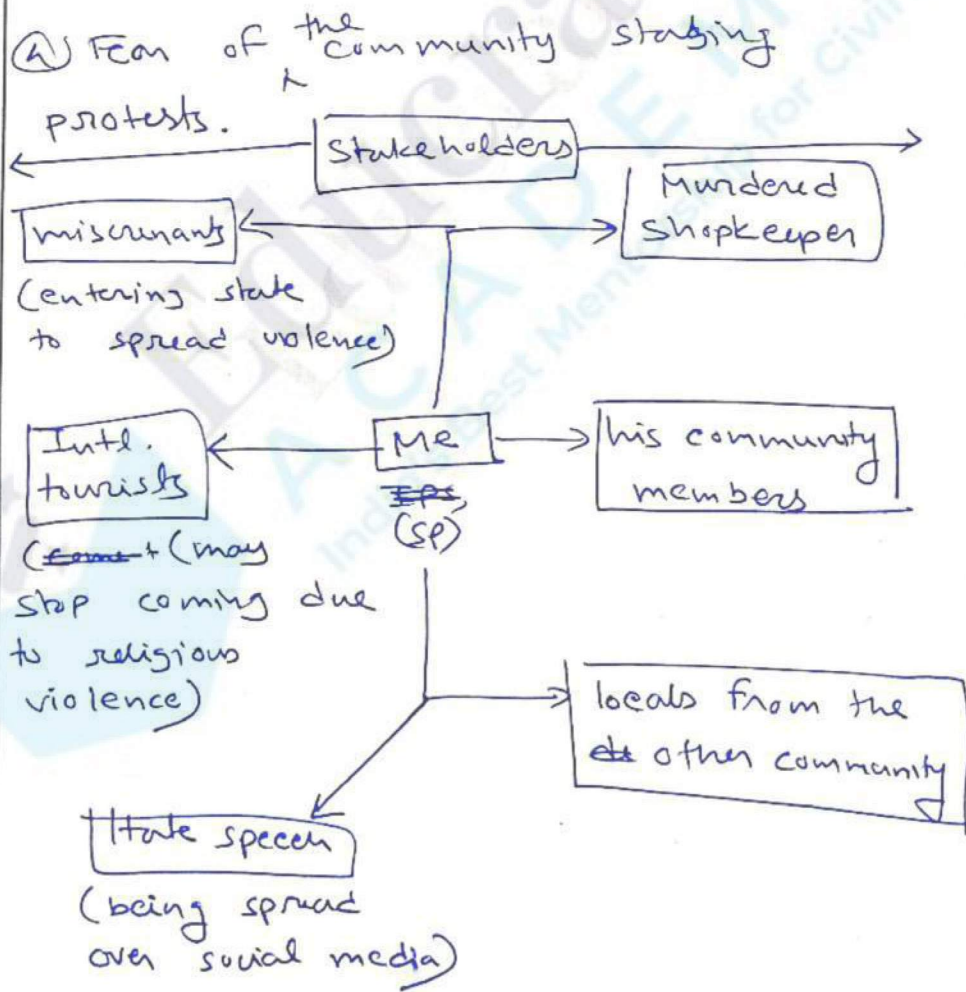 (4) Fear of the community staging
protests.
Stakeholders
miscreants
(entering state
to spread violence)
Murdered
Shopkeeper
Intl.
tourists
(may
stop coming due
to religious
violence)
Me
IPS,
(SP)
his community
members
locals from the
other community
Hate speech
(being spread
over social media)
Educra
ACADEM
India's Best Mentorship for Civil